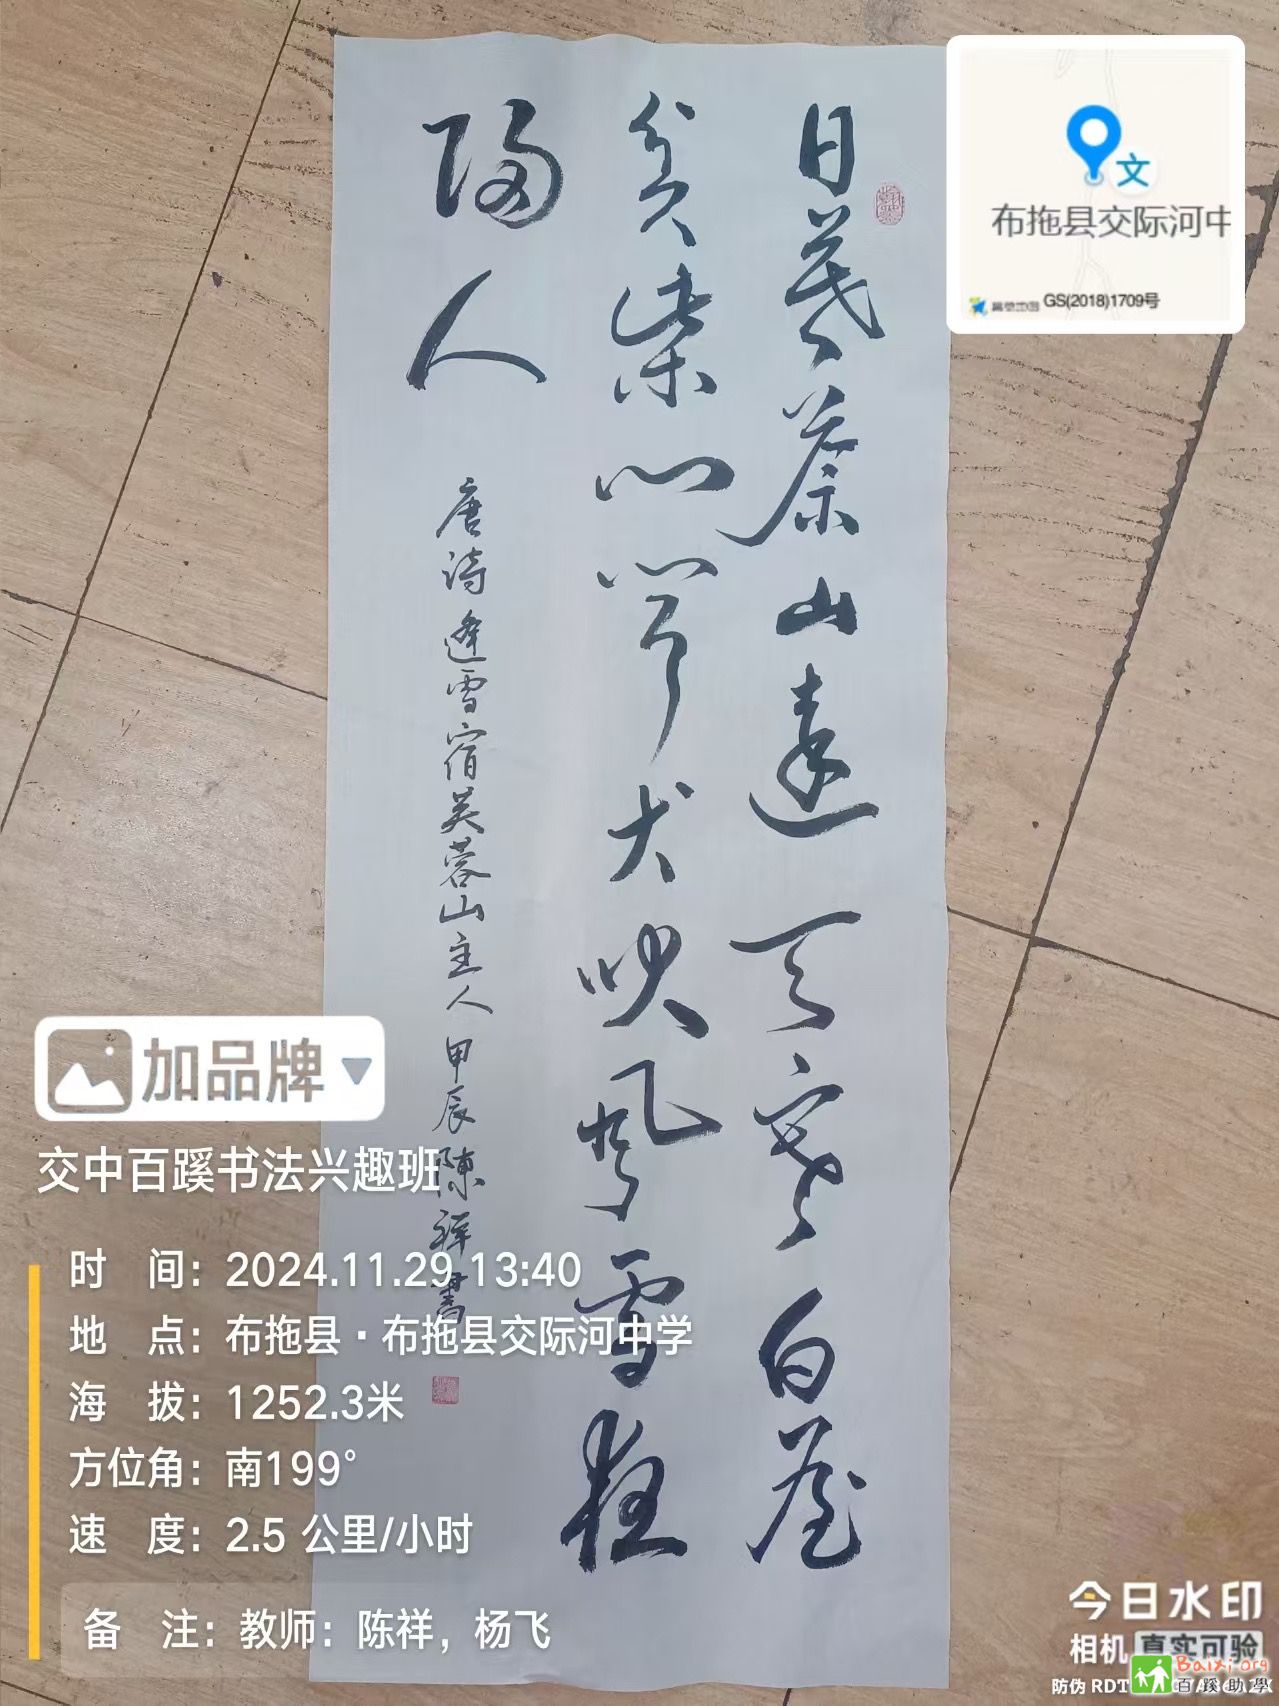 日暮蒼山遠天寒白屋
貧柴門聞犬吠風雪
歸人
唐诗逢雪宿芙蓉山主人 甲辰陳祥書
文
布拖县交际河中
GS(2018)1709号
加品牌
交中百蹊书法兴趣班
时 间：2024.11.29 13:40
地 点：布拖县·布拖县交际河中学
海 拔：1252.3米
方位角：南199°
速 度：2.5 公里/小时
备 注：教师：陈祥，杨飞
今日水印
相机 真实可验
防伪 RDT
Baixi.org
百蹊助學